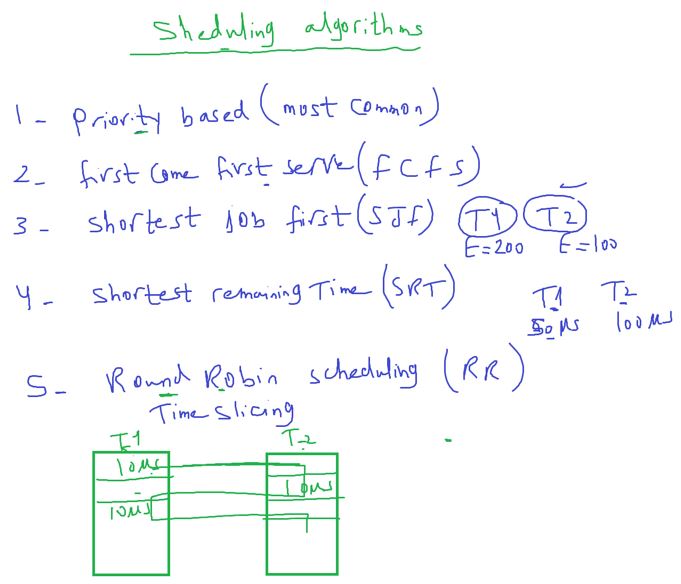 Sheduling algorithms
1 - Priority based (most common)
2 - first come first serve (fCfS)
3 - shortest job first (SJf) T1 T2
E=200 E=100
4 - shortest remaining Time (SRT)
T1 T2
50 µs 100 µs
5 - Round Robin scheduling (RR)
Time slicing
T1 T2
10µs
10µs
10µs